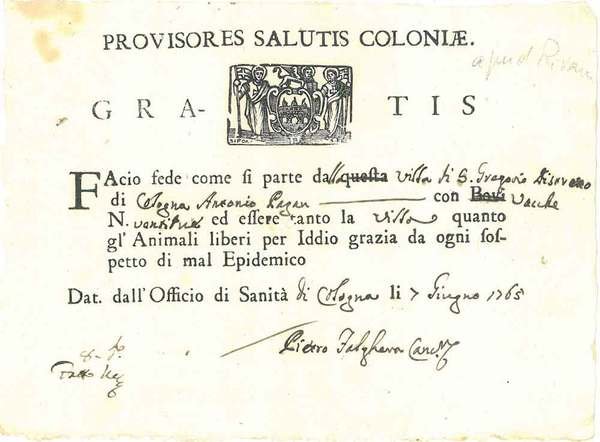 PROVISORES SALUTIS COLONIÆ.
GRA- TIS
FAcio fede come si parte dalla questa villa di S. Gregorio
di Cologna Antonio Pagan con Bovi Vacche
N. ed essere tanto la villa quanto
gl' Animali liberi per Iddio grazia da ogni sos-
petto di mal Epidemico
Dat. dall'Officio di Sanità di Cologna li 7 Giugno 1765
Pietro Falghera Canc.